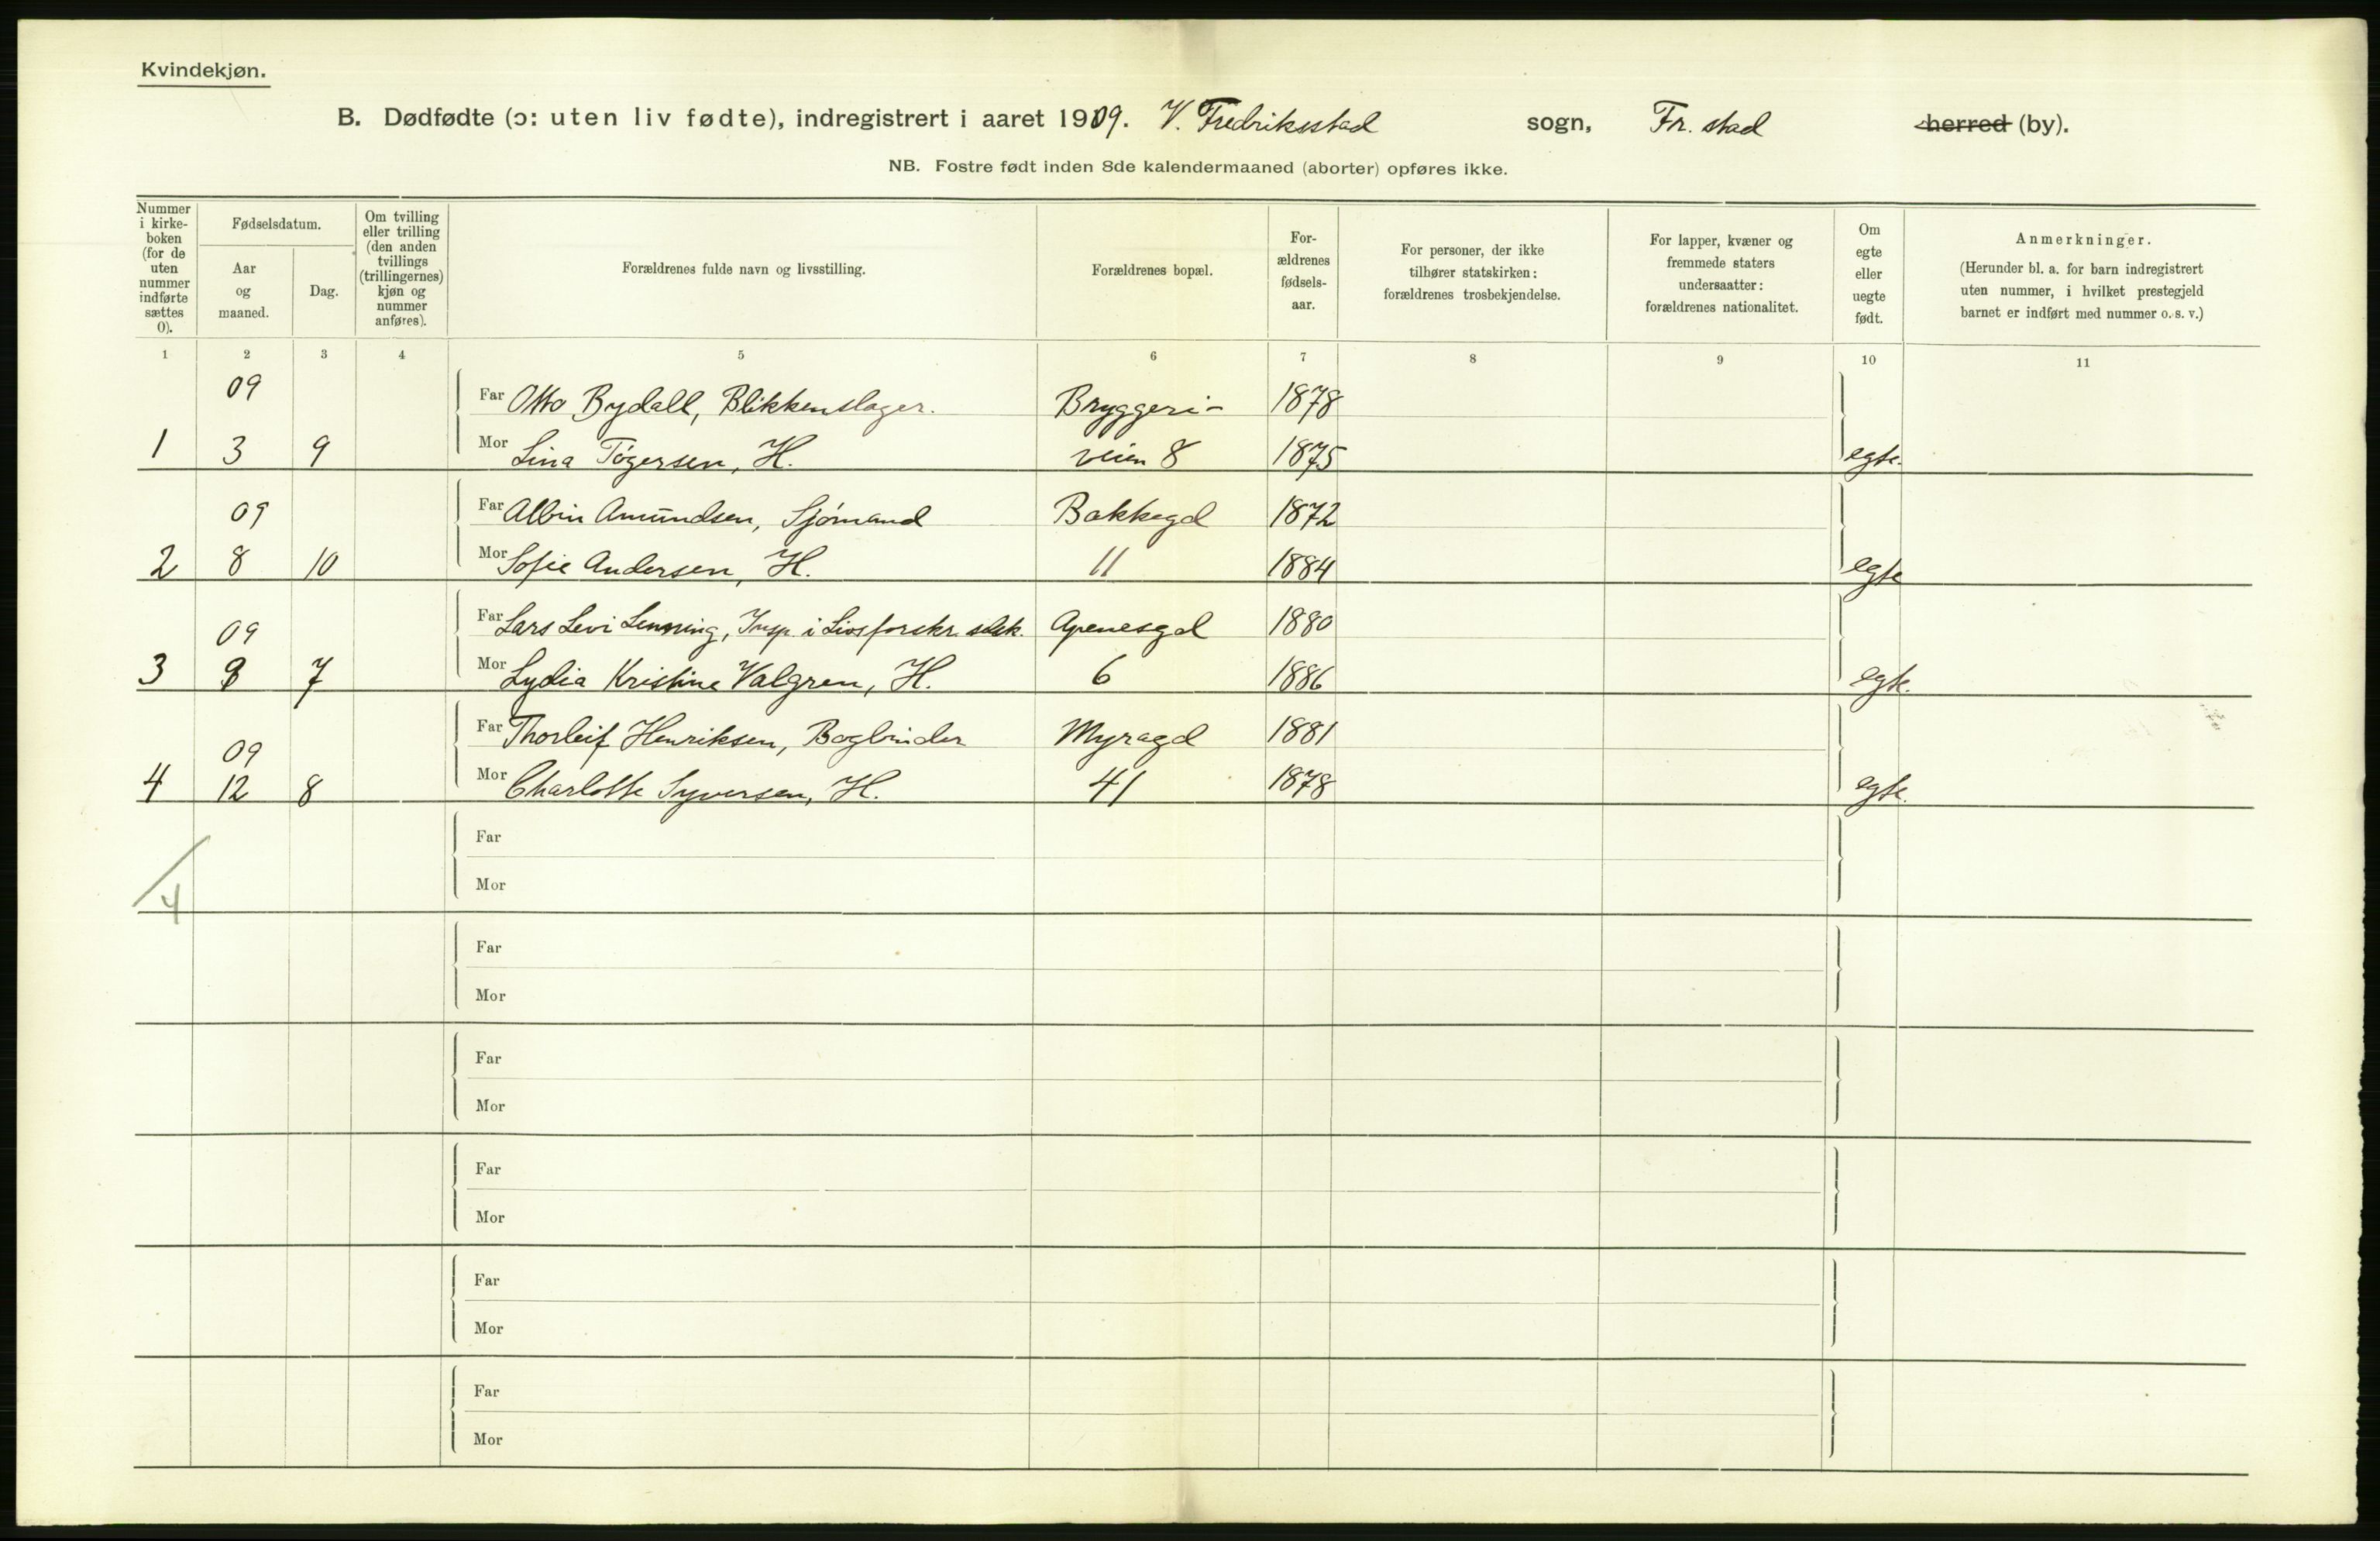 Kvindekjøn.
B. Dødfødte (ɔ: uten liv fødte), indregistrert i aaret 1909. V. Fredriksstad sogn, Fr. stad herred (by).
NB. Fostre født inden 8de kalendermaaned (aborter) opføres ikke.
Nummer i kirke-boken (for de uten nummer indførte sættes 0).
Fødselsdatum.
Aar og maaned.
Dag.
Om tvilling eller trilling (den anden tvillings (trillingernes) kjøn og nummer anføres).
Forældrenes fulde navn og livsstilling.
Forældrenes bopæl.
For-ældrenes fødsels-aar.
For personer, der ikke tilhører statskirken: forældrenes trosbekjendelse.
For lapper, kvæner og fremmede staters undersaatter: forældrenes nationalitet.
Om egte eller uegte født.
Anmerkninger.
(Herunder bl. a. for barn indregistrert uten nummer, i hvilket prestegjeld barnet er indført med nummer o. s. v.)
1 2 3 4 5 6 7 8 9 10 11
09 Far Otto Bydall, Blikkenslager. Bryggeri- 1878
1 3 9 Mor Lina Tøgersen, H. veien 8 1875 egte.
09 Far Albin Amundsen, Sjømand Bakkegd 1872
2 8 10 Mor Sofie Andersen, H. 11 1884 egte
09 Far Lars Levi Lenning, Insp. i Livsforskr. selsk. Apenesgd 1880
3 9 7 Mor Lydia Kristine Valgren, H. 6 1886 egte.
09 Far Thorleif Henriksen, Bogbinder Myragd 1881
4 12 8 Mor Charlotte Syversen, H. 41 1878 egte.
Far
Mor
4
Far
Mor
Far
Mor
Far
Mor
Far
Mor
Far
Mor